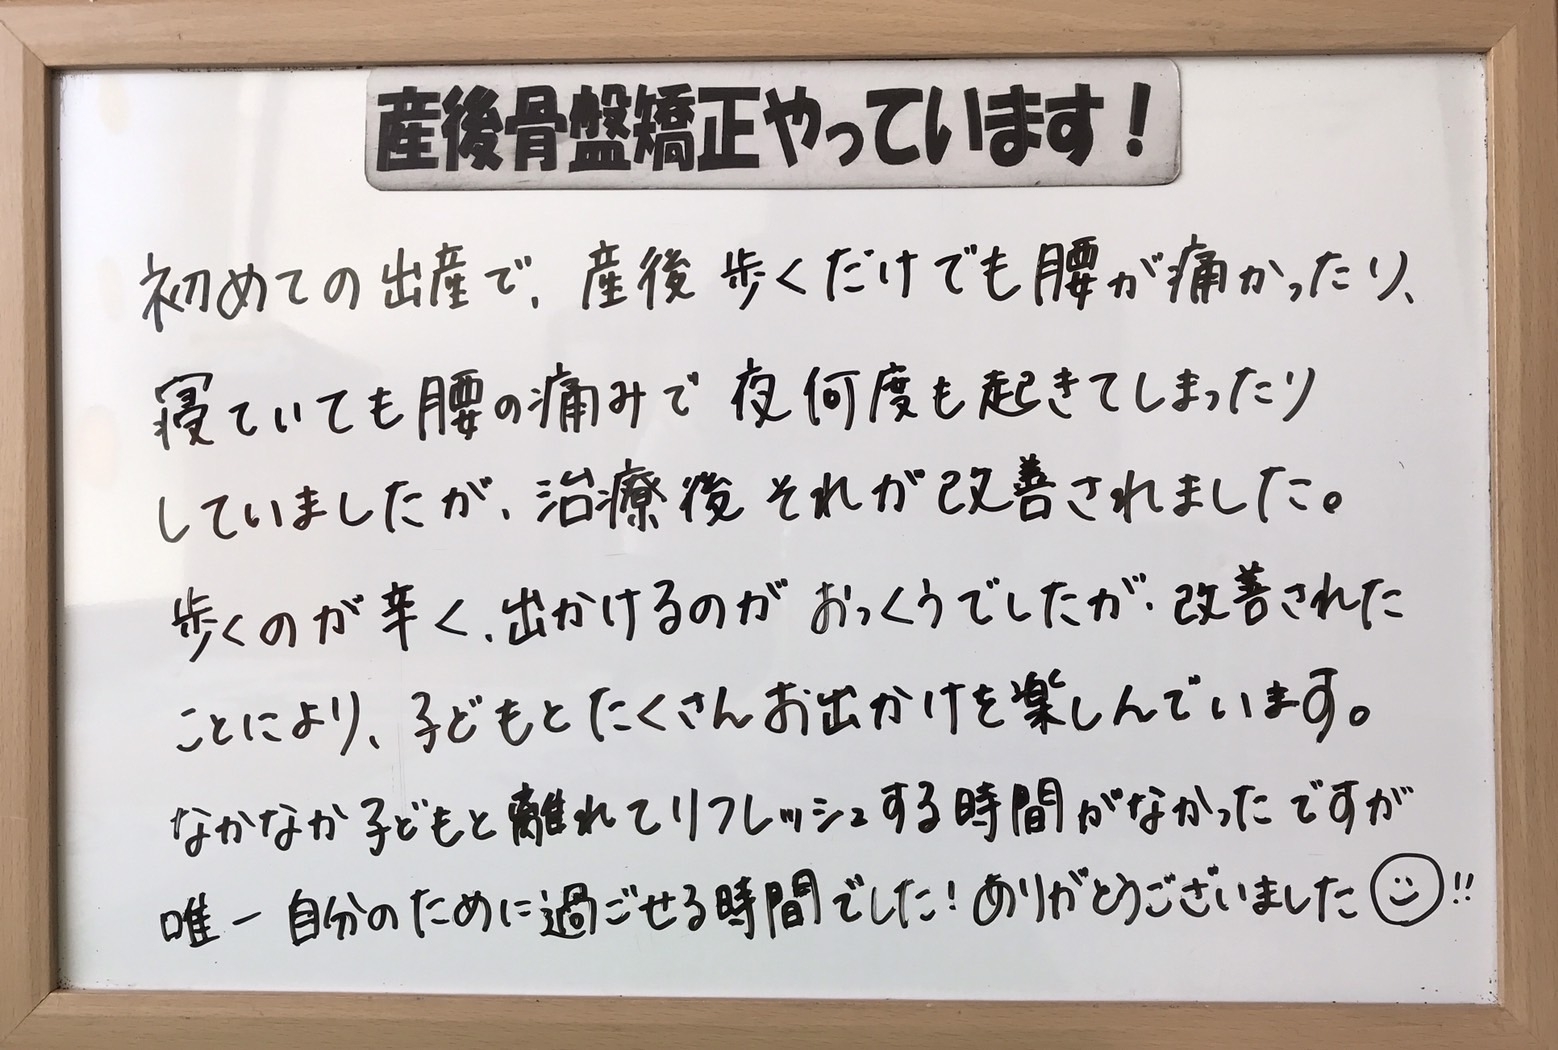 産後骨盤矯正やっています！
初めての出産で、産後歩くだけでも腰が痛かったり、
寝ていても腰の痛みで夜何度も起きてしまったり
していましたが、治療後それが改善されました。
歩くのが辛く、出かけるのがおっくうでしたが、改善された
ことにより、子どもとたくさんお出かけを楽しんでいます。
なかなか子どもと離れてリフレッシュする時間がなかったですが
唯一自分のために過ごせる時間でした！ありがとうございました!!